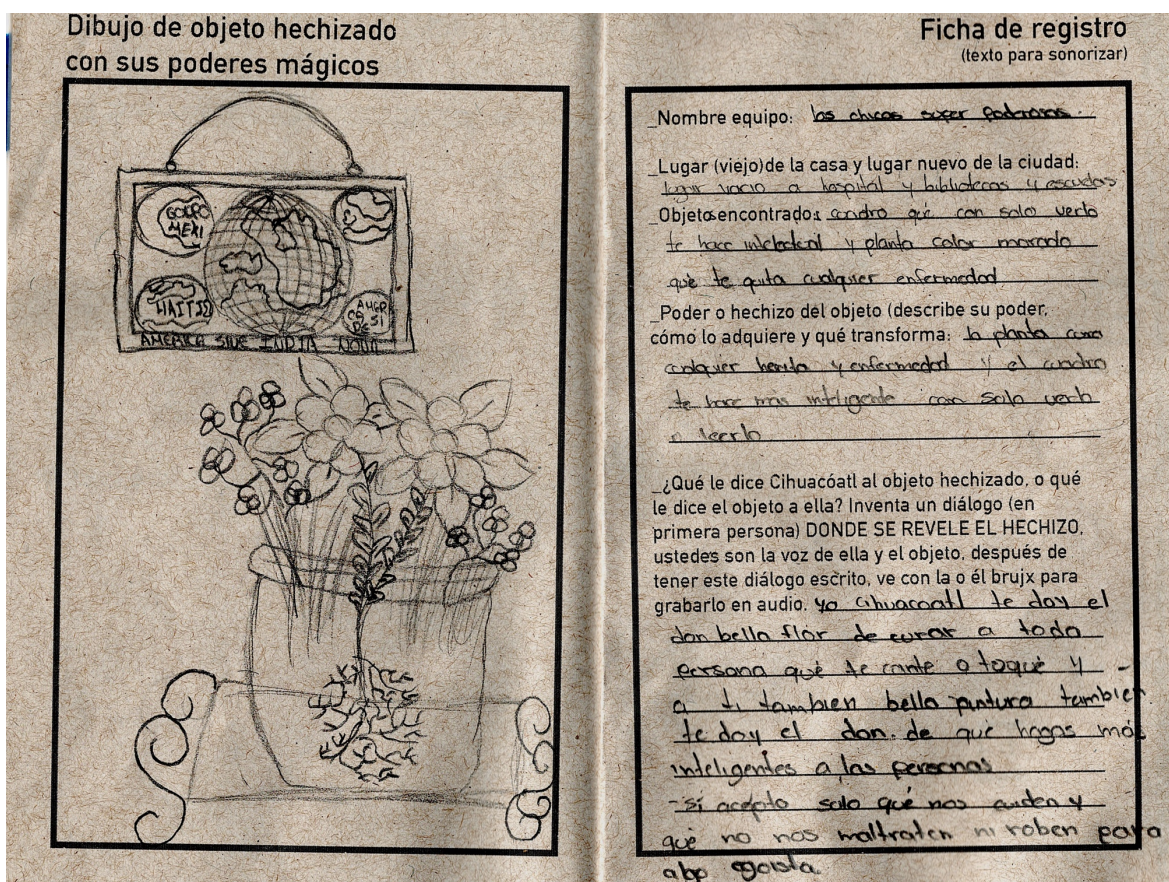 Dibujo de objeto hechizado
con sus poderes mágicos
GOLFO
MEXI
HAITII
AMERICA SIVE INDIA NOVA
Ficha de registro
(texto para sonorizar)
_Nombre equipo: las chicas super poderosas.
_Lugar (viejo)de la casa y lugar nuevo de la ciudad:
lugar vacio a hospital y bibliotecas y escuelas
_Objeto encontrado: cuadro qué con solo verlo
te hace intelectual y planta color morado
qué te quita cualquier enfermedad
_Poder o hechizo del objeto (describe su poder,
cómo lo adquiere y qué transforma: la planta cura
cualquier herida y enfermedad y el cuadro
te hace mas inteligente con solo verlo
o leerlo
_¿Qué le dice Cihuacóatl al objeto hechizado, o qué
le dice el objeto a ella? Inventa un diálogo (en
primera persona) DONDE SE REVELE EL HECHIZO,
ustedes son la voz de ella y el objeto, después de
tener este diálogo escrito, ve con la o él brujx para
grabarlo en audio. yo cihuacoatl te doy el
don bella flor de curar a toda
persona qué te cante o toqué y -
a ti tambien bella pintura tambien
te doy el don. de qué hagas más
inteligentes a las personas
-si acepto solo qué nos cuiden y
qué no nos maltraten ni roben para
algo egoista.